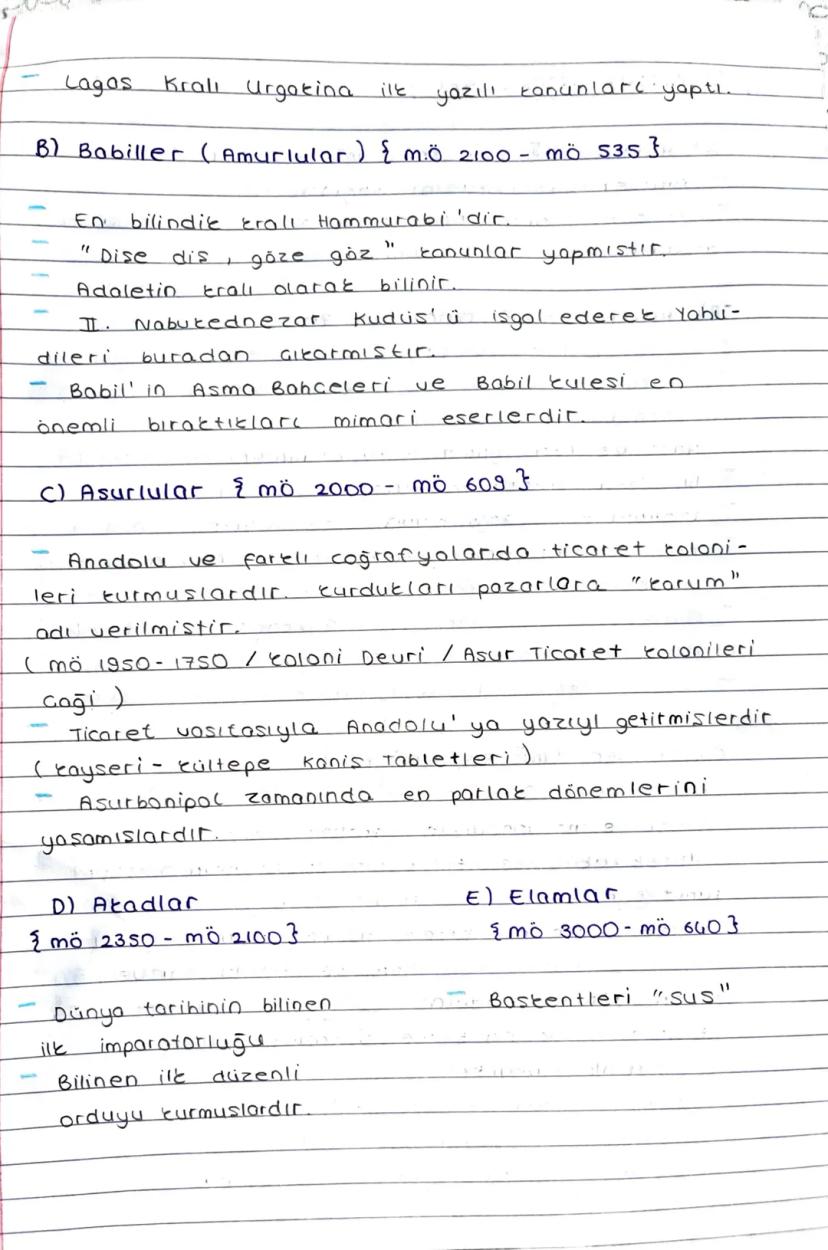 - Lagas Kralı Urgakina ilk yazılı kanunları yaptı.
B) Babiller (Amurlular) { m.ö 2100 - mö 535 }
- En bilindik kralı Hammurabi'dir.
- "Dise dis, göze göz" kanunlar yapmıstır.
- Adaletin kralı olarak bilinir.
- II. Nabukednezar Kudüs'ü isgal ederek Yahu-
dileri buradan cıkarmıstır.
- Babil'in Asma Bahceleri ve Babil kulesi en
önemli bıraktıkları mimari eserlerdir.
C) Asurlular { mö 2000 - mö 609 }
- Anadolu ve farklı coğrafyalarda ticaret koloni-
leri kurmuslardır. kurdukları pazarlara "karum"
adı verilmistir.
( mö 1950 - 1750 / koloni Devri / Asur Ticaret kolonileri
caği )
- Ticaret vasıtasıyla Anadolu'ya yazıyı getirmislerdir
( kayseri - kültepe Kanis Tabletleri )
- Asurbanipal zamanında en parlak dönemlerini
yasamıslardır.
D) Akadlar
{ mö 2350 - mö 2100 }
- Dünya tarihinin bilinen
ilk imparatorluğu
- Bilinen ilk düzenli
orduyu kurmuslardır.
E) Elamlar
{ mö 3000 - mö 640 }
- Baskentleri "sus"